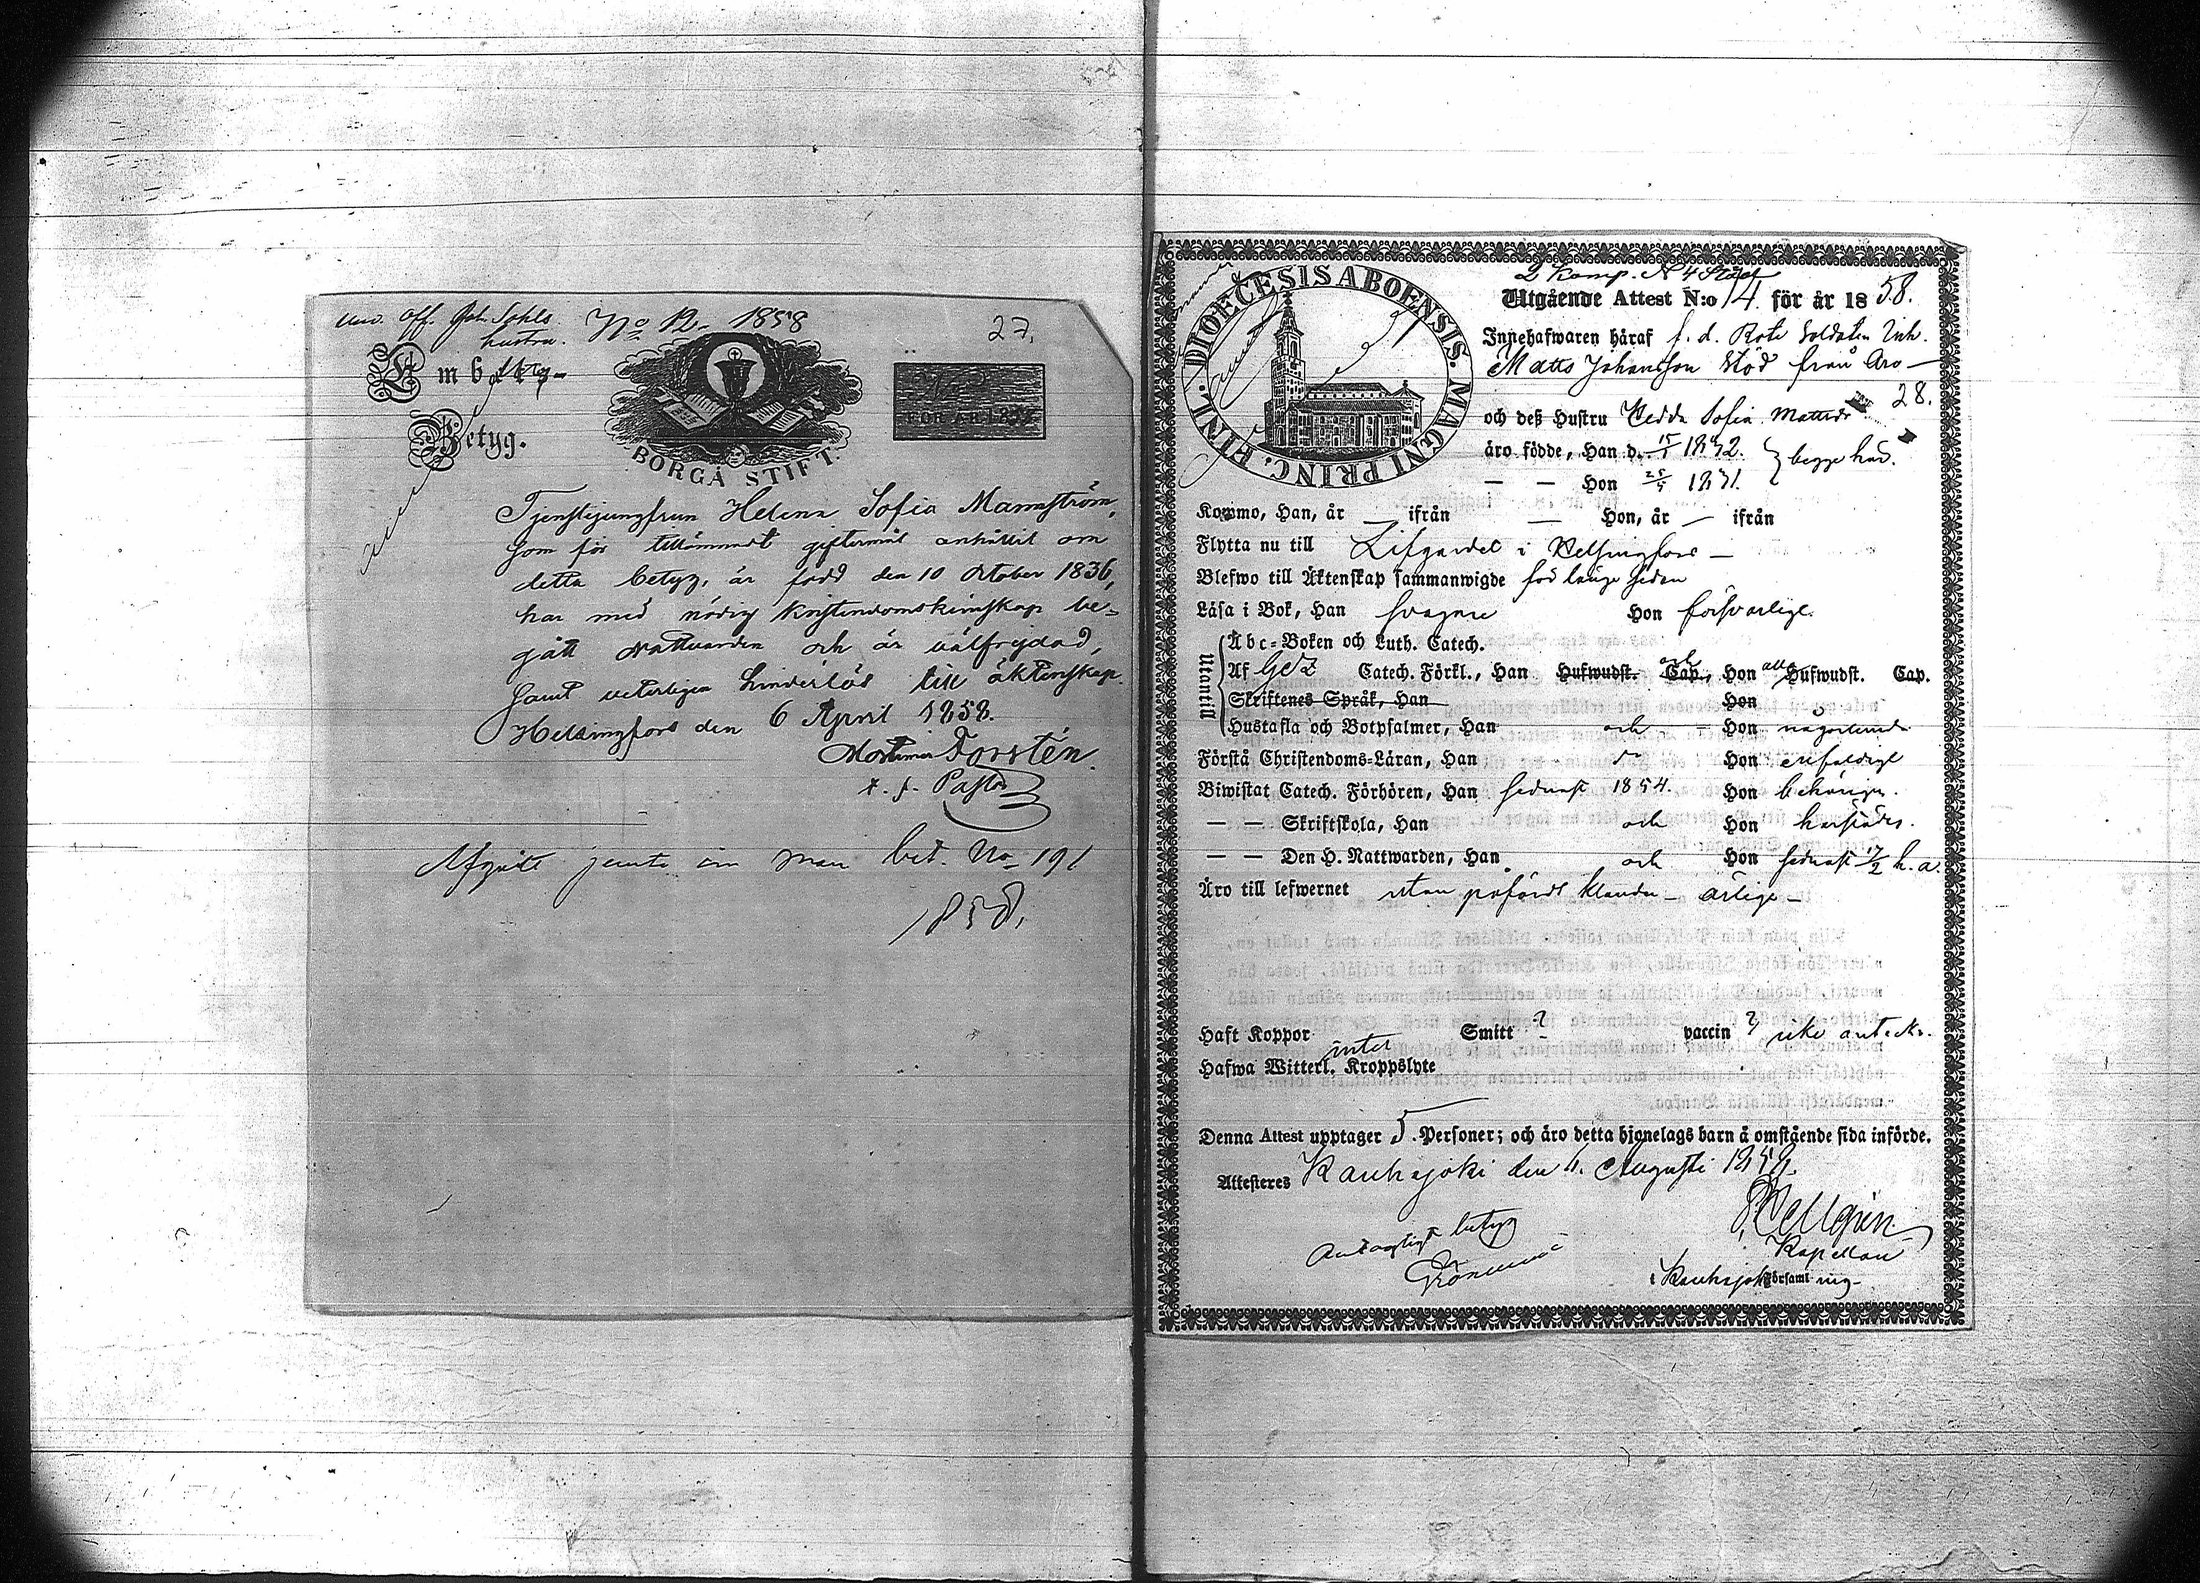 und. off. Joh. Sohls
hustru. No 12. 1858
27.
Embets-
Betyg.
BORGÅ STIFT.
FÖR ÅR 185
Tjenstejungfrun Helena Sofia Mannström,
som för tillämnadt giftermål anhållit om
detta betyg, är född den 10 October 1836,
har med nödig kristendomskunskap be-
gått Nattvarden och är välfrejdad,
samt veterligen hinderlös till äktenskap.
Helsingfors den 6 April 1858.
Mortimer Forstén.
t. f. Pastor
Afgått jemte sin man bet. No 191
1858.
DIOECESIS ABOENSIS. MAGNI PRINC. FINL.
2 Komp. N 4 Stöd
Utgående Attest N:o 14. för år 1858.
Innehafwaren häraf f. d. Rote Soldaten Inh.
Matts Johansson Stöd från Aro
28.
och deß Hustru Hedda Sofia Mattsdr
äro födde, Han d. 1832. begge här.
— — Hon 25/5 1831.
Kommo, Han, år — ifrån — Hon, år — ifrån
Flytta nu till Lifgardet i Helsingfors —
Blefwo till Äktenskap sammanwigde för länge sedan
Läsa i Bok, Han svagare Hon försvarlige.
Utantill
Abc-Boken och Luth. Catech.
Af Catech. Förkl., Han Hufwudst. och Cap., Hon alla Hufwudst. Cap.
Skriftenes Språk, Han Hon
Hustafla och Botpsalmer, Han och Hon någorlunda
Förstå Christendoms-Läran, Han Hon enfaldigt
Biwistat Catech. Förhören, Han sednast 1854. Hon behörigen.
— — Skriftskola, Han och Hon härstädes.
— — Den H. Nattwarden, Han och Hon sednast 17/2 h. a.
Äro till lefwernet utan påfördt klander — ärlige —
Haft Koppor Smitt ? vaccin ? icke anteckn.
Hafwa Witterl. intet Kroppslyte
Denna Attest upptager 5 Personer; och äro detta hjonelags barn å omstående sida införde.
Attesteres Kauhajoki den 6. Augusti 1858.
Hellgrén
Kapellan
i Kauhajoki Församling
betyg